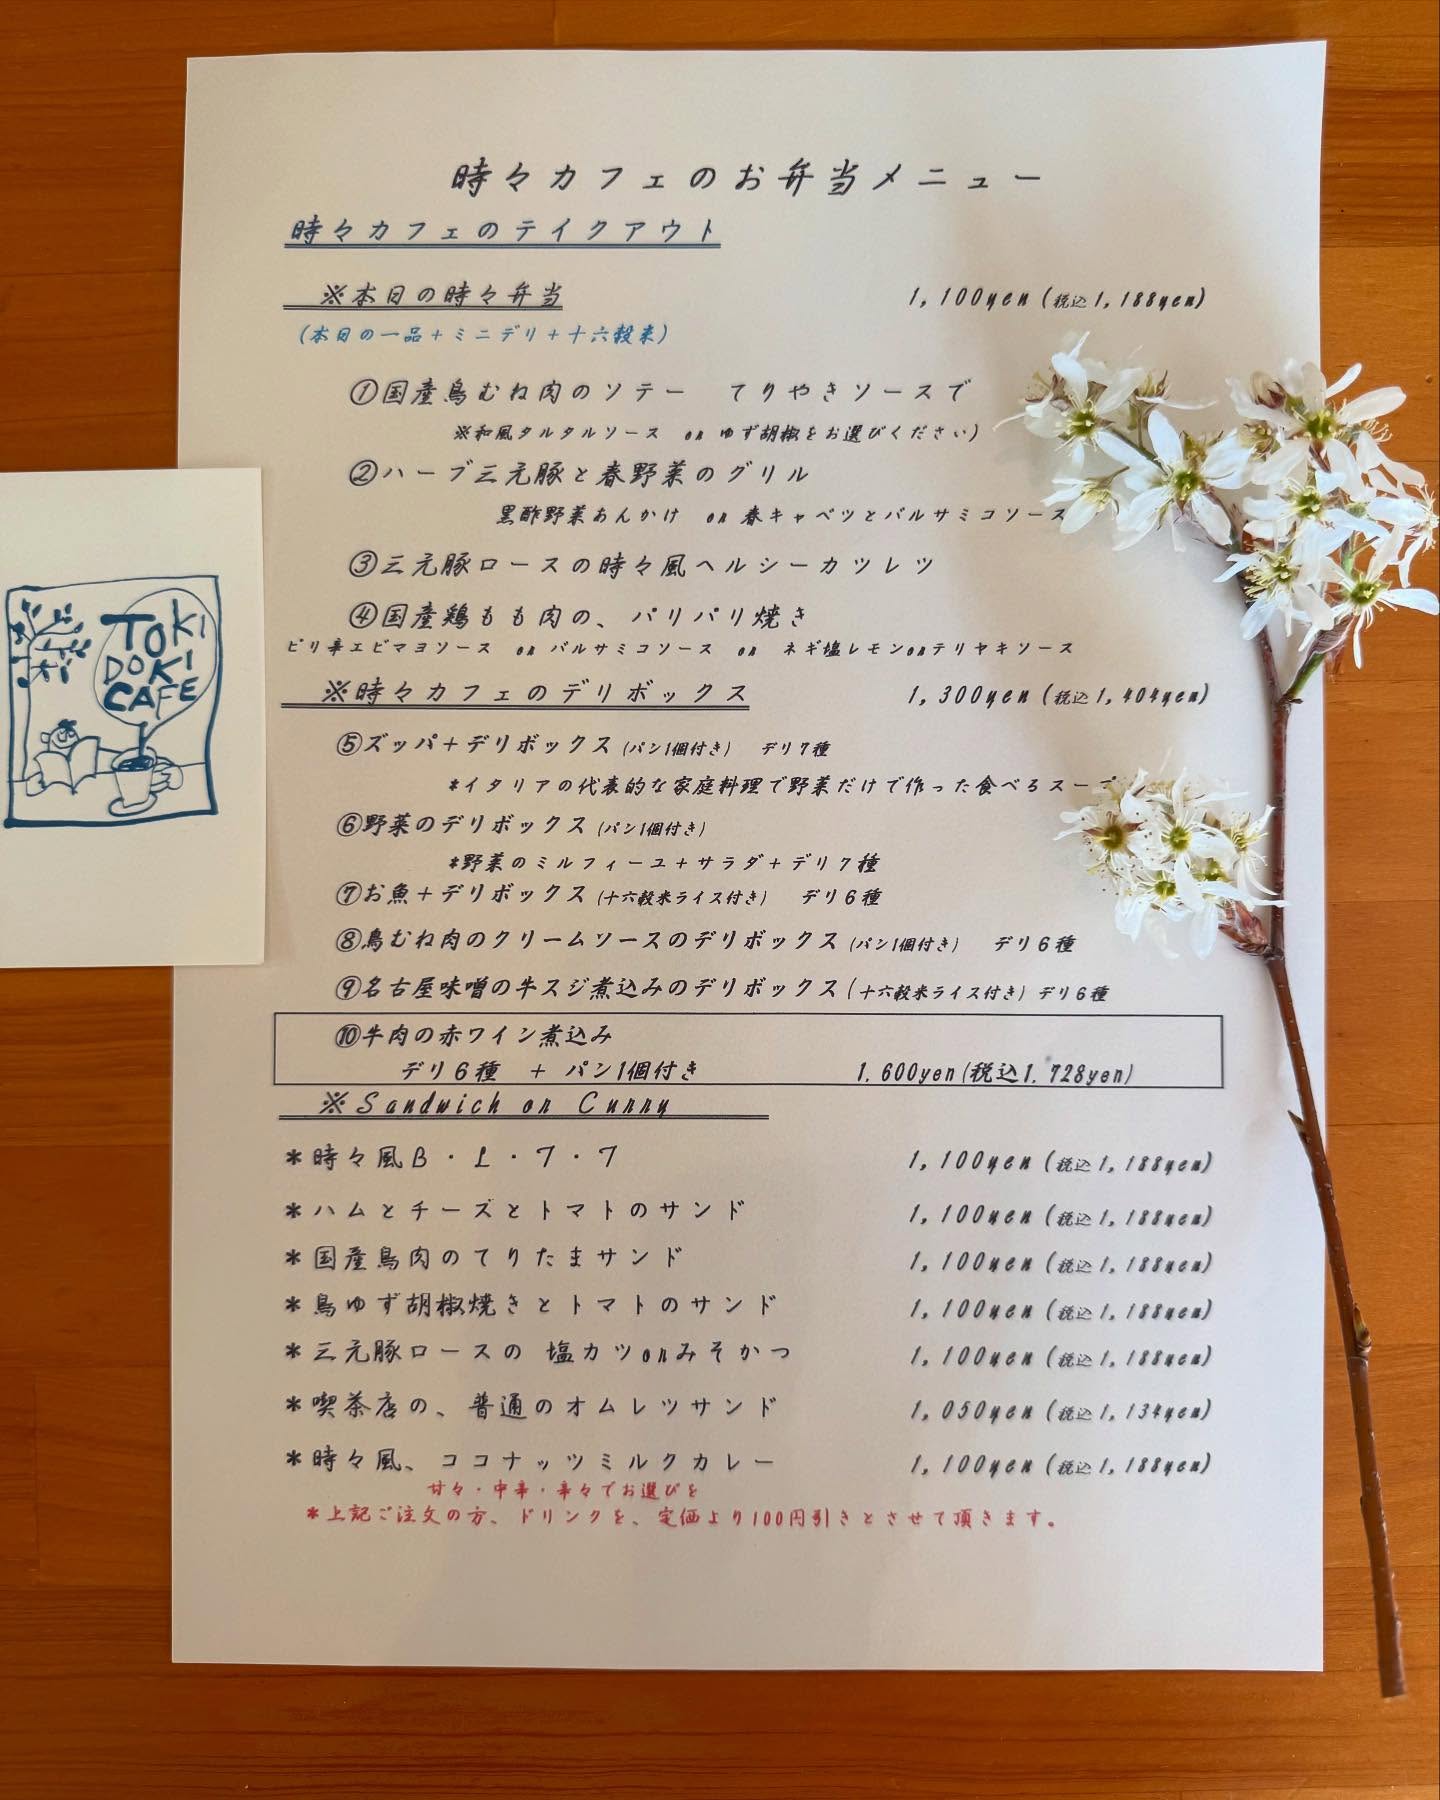 時々カフェのお弁当メニュー
時々カフェのテイクアウト
※本日の時々弁当 1,100yen (税込1,188yen)
(本日の一品+ミニデリ+十六穀米)
①国産鳥むね肉のソテー てりやきソースで
※和風タルタルソース or ゆず胡椒をお選びください)
②ハーブ三元豚と春野菜のグリル
黒酢野菜あんかけ or 春キャベツとバルサミコソース
③三元豚ロースの時々風ヘルシーカツレツ
④国産鶏もも肉の、パリパリ焼き
ピリ辛エビマヨソース or バルサミコソース or ネギ塩レモンorテリヤキソース
※時々カフェのデリボックス 1,300yen (税込1,404yen)
⑤ズッパ+デリボックス (パン1個付き) デリ7種
*イタリアの代表的な家庭料理で野菜だけで作った食べるスープ
⑥野菜のデリボックス (パン1個付き)
*野菜のミルフィーユ+サラダ+デリ7種
⑦お魚+デリボックス (十六穀米ライス付き) デリ6種
⑧鳥むね肉のクリームソースのデリボックス (パン1個付き) デリ6種
⑨名古屋味噌の牛スジ煮込みのデリボックス (十六穀米ライス付き) デリ6種
⑩牛肉の赤ワイン煮込み
デリ6種 + パン1個付き 1.600yen(税込1.728yen)
※Sandwich or Curry
*時々風B・L・T・T 1,100yen (税込1,188yen)
*ハムとチーズとトマトのサンド 1,100yen (税込1,188yen)
*国産鳥肉のてりたまサンド 1,100yen (税込1,188yen)
*鳥ゆず胡椒焼きとトマトのサンド 1,100yen (税込1,188yen)
*三元豚ロースの 塩カツorみそかつ 1,100yen (税込1,188yen)
*喫茶店の、普通のオムレツサンド 1,050yen (税込1,134yen)
*時々風、ココナッツミルクカレー 1,100yen (税込1,188yen)
甘々・中辛・辛々でお選びを
*上記ご注文の方、ドリンクを、定価より100円引きとさせて頂きます。
TOKI
DOKI
CAFE